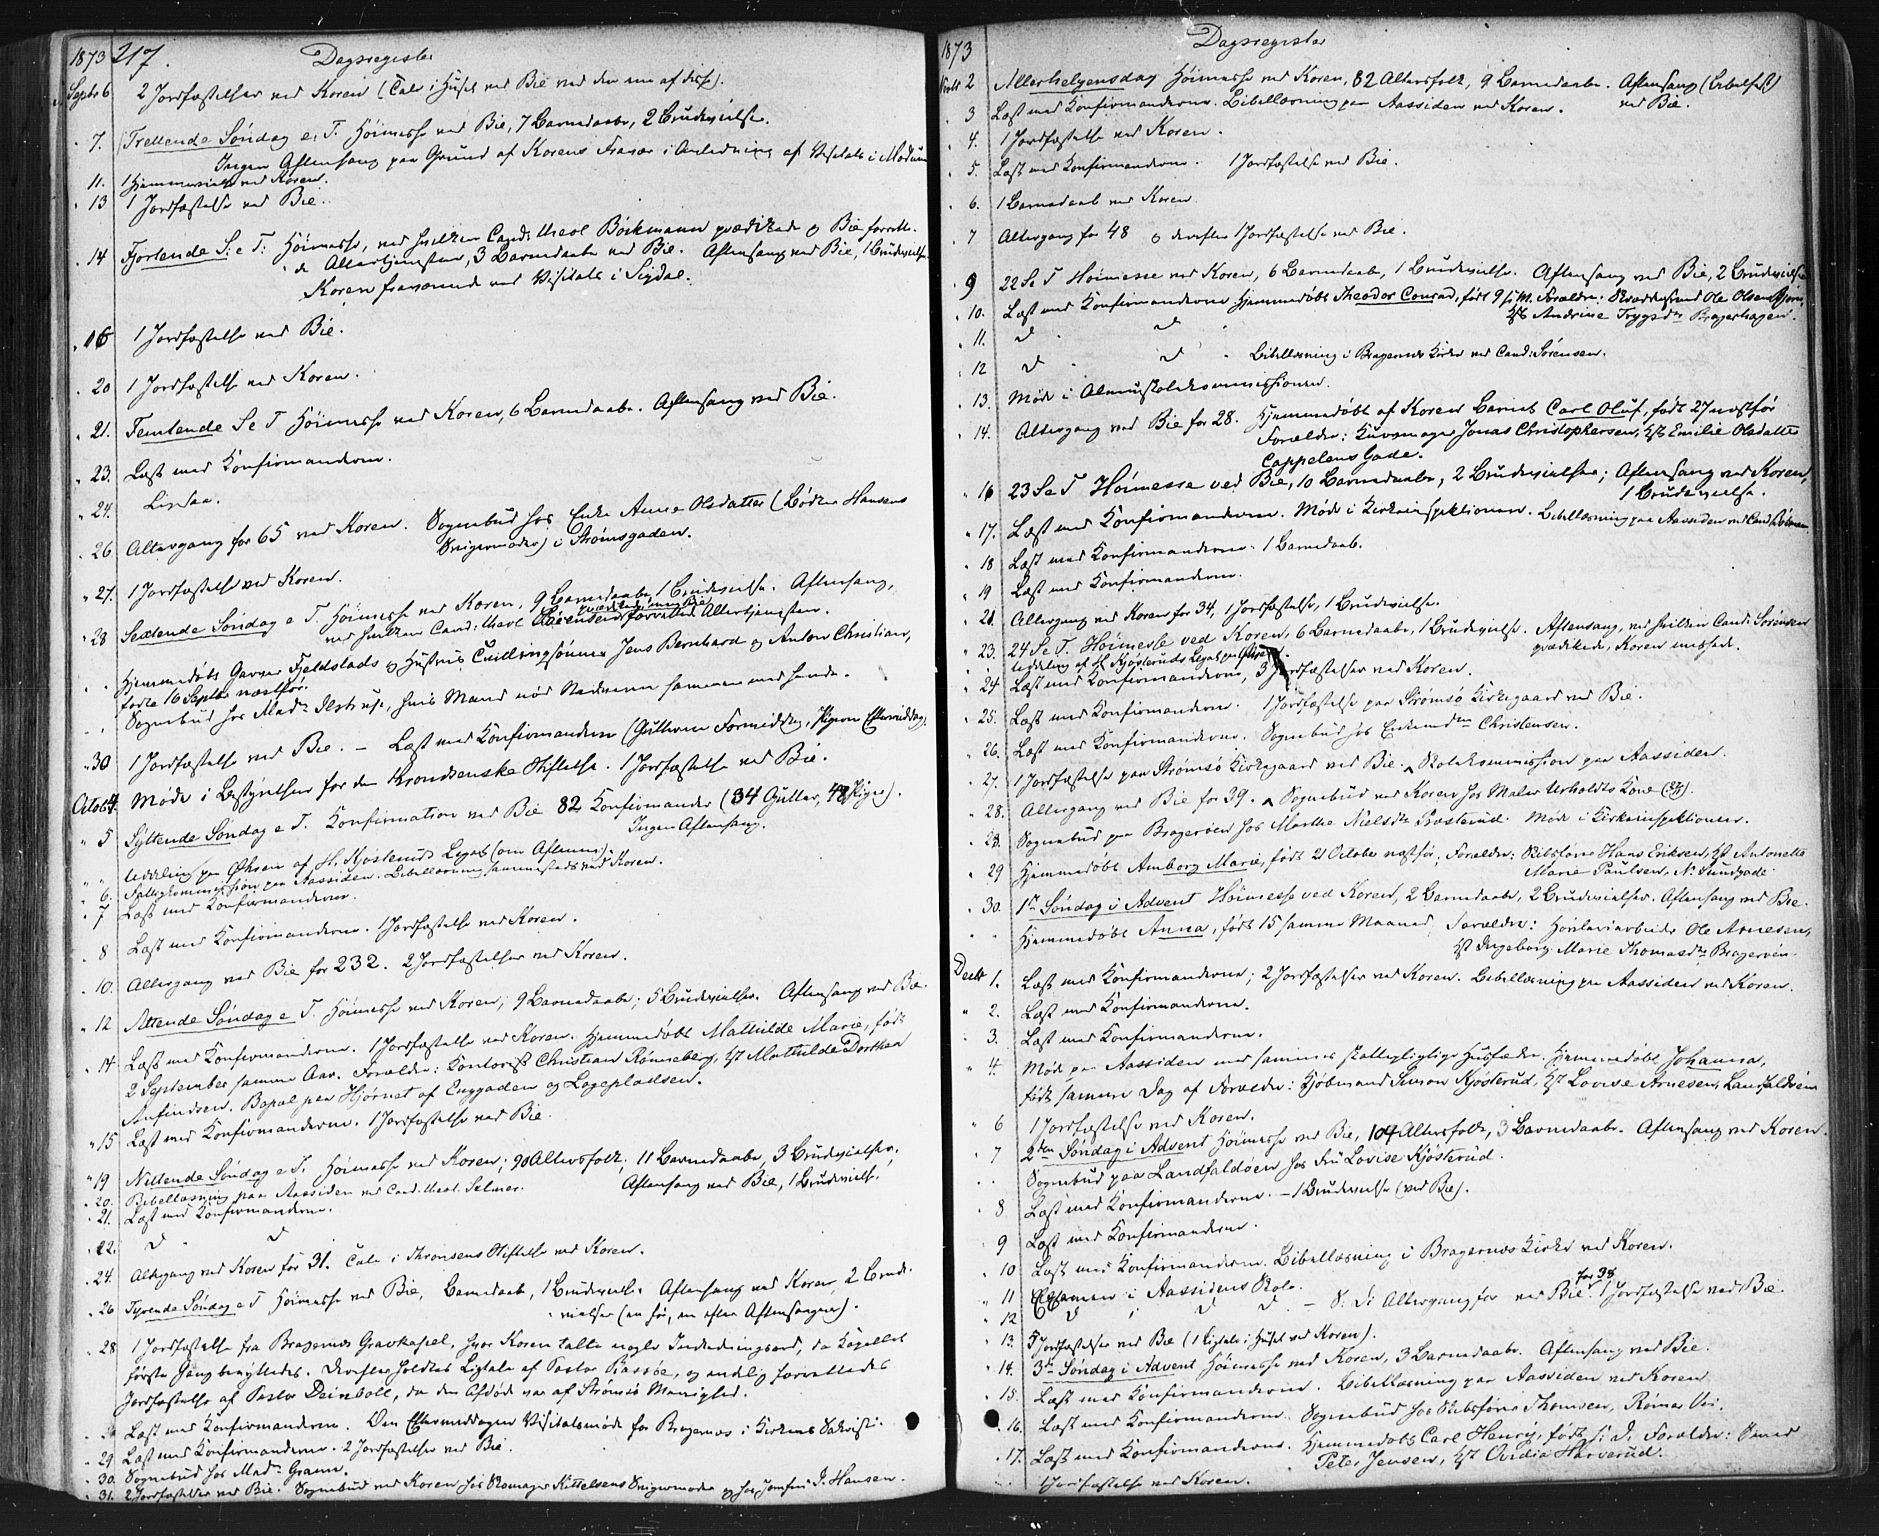 1873 217. Dagsregister
Septbr 6 2 Jordfæstelser ved Koren (Tale i Huset ved Bie ved den ene af disse).
7. Trettende Søndag e. T. Høimesse ved Bie, 7 Barnedaab, 2 Brudevielse.
Ingen Aftensang paa Grund af Korens Fravær i Anledning af Visitats i Modum
11. 1 Hjemmevielse ved Koren.
13 1 Jordfæstelse ved Bie.
14 Fjortende S. e. T. Høimesse, ved hvilken Cand. theol. Böckmann prædikede og Bie forrette-
de Altertjenesten, 3 Barnedaab ved Bie. Aftensang ved Bie, 1 Brudevielse.
Koren fraværende ved Visitats i Sigdal.
16 1 Jordfæstelse ved Bie.
20 1 Jordfæstelse ved Koren.
21. Femtende S e T Høimesse ved Koren, 6 Barnedaab. Aftensang ved Bie.
23. Læst med Konfirmanderne.
24. Ligesaa.
26 Altergang for 65 ved Koren. Sognebud hos Enke Anne Olsdatter (Bødker Hansens
Svigermoder) i Strømsgaden.
27. 1 Jordfæstelse ved Koren.
28 Sextende Søndag e T. Høimesse ved Koren, 9 Barnedaab, 1 Brudevielse. Aftensang,
ved hvilken Cand. theol. Sørensen prædikede, men Bie forrettede Altertjenesten.
Hjemmedøbt Garver Fjeldstads og Hustrus Tvillingsønner Jens Bernhard og Anton Christian,
fødte 16 Septbr næstfør.
Sognebud hos Mad. Ilstrup, hvis Mand nød Nadveren sammen med hende.
30 1 Jordfæstelse ved Bie. – Læst med Konfirmanderne (Gutterne Formiddag, Pigerne Eftermiddag).
Octob. 4. Møde i Bestyrelsen for den Thronsenske Stiftelse. 1 Jordfæstelse ved Bie.
5 Syttende Søndag e T. Konfirmation ved Bie 82 Konfirmander (34 Gutter, 48 Piger).
Ingen Aftensang.
Uddeling paa Øhren af H. Kjøsteruds Legat (om Aftenen).
6. Fattigkommission paa Aassiden. Bibellæsning sammesteds ved Koren.
7 Læst med Konfirmanderne.
8 Læst med Konfirmanderne. 1 Jordfæstelse ved Koren.
10. Altergang ved Bie for 232. 2 Jordfæstelser ved Koren.
12 Attende Søndag e T. Høimesse ved Koren, 9 Barnedaab; 5 Brudevielser. Aftensang ved Bie.
14 Læst med Konfirmanderne. 1 Jordfæstelse ved Koren. Hjemmedøbt Mathilde Marie, født
2 September samme Aar. Forældre: Kontorist Christian Rønneberg, Hst Mathilde Dorthea
Anfindsen. Bopæl paa Hjørnet af Enggaden og Løgepladsen.
15 Læst med Konfirmanderne. 1 Jordfæstelse ved Bie.
19 Nittende Søndag e T. Høimesse ved Koren; 90 Altersfolk; 11 Barnedaab, 3 Brudevielser,
Aftensang ved Bie, 1 Brudevielse.
20. Bibellæsning paa Aassiden ved Cand. theol. Selmer.
21. Læst med Konfirmanderne.
22. d d
24. Altergang ved Koren for 31. Tale i Thronsens Stiftelse ved Koren.
26 Tyvende Søndag e T Høimesse ved Bie, Barnedaab, 1 Brudevielse. Aftensang ved Koren, 2 Brude-
vielser (en før, en efter Aftensangen).
28 1 Jordfæstelse fra Bragernes Gravkapel, hvor Koren talte nogle Indledningsord, da Kapellet
første Gang benyttedes. Derefter holdtes Ligtale af Pastor Bassøe, og endelig forrettedes
Jordfæstelse af Pastor Deinboll, da den Afdøde var af Strømsø Menighed.
Læst med Konfirmanderne. Om Eftermiddagen Visitatsmøde for Bragernes i Kirkens Sakristi.
29 Læst med Konfirmanderne. 2 Jordfæstelser ved Bie.
30. Sognebud hos Mad. Gramm.
31. 2 Jordfæstelser ved Bie. Sognebud ved Koren hos Skomager Kittelsens Svigermoder og hos Jomfru I. Hansen.
1873 Dagsregister
Novbr 2 Allerhelgensdag Høimesse ved Koren, 82 Altersfolk, 9 Barnedaab. Aftensang (Bibelfest)
ved Bie.
3 Læst med Konfirmanderne. Bibellæsning paa Aassiden ved Koren.
4. 1 Jordfæstelse ved Koren.
5. Læst med Konfirmanderne. 1 Jordfæstelse ved Bie.
6. 1 Barnedaab ved Koren.
7 Altergang for 48 og derefter 1 Jordfæstelse ved Bie.
9 22 S e T Høimesse ved Koren, 6 Barnedaab, 1 Brudevielse. Aftensang ved Bie, 2 Brudevielser
10. Læst med Konfirmanderne. Hjemmedøbt Theodor Conrad, født 9 s. M. Forældre: Skræddersvend Ole Olsen Bjern,
Hst Andrine Trygsdr Bragerhagen.
11. d d
12 d d Bibellæsning i Bragernes Kirke ved Cand. Sørensen.
13. Møde i Almueskolekommissionen.
14. Altergang ved Bie for 28. Hjemmedøbt af Koren Barnet Carl Oluf, født 27 næstfør
Forældre: Kurvmager Jonas Christophersen, Hst Emilie Olsdatter
Cappelens Gade.
16 23 S e T Høimesse ved Bie, 10 Barnedaab, 2 Brudevielser; Aftensang ved Koren,
1 Brudevielse.
17. Læst med Konfirmanderne. Møde i Kirkeinspektionen. Bibellæsning paa Aassiden ved Cand.
18 Læst med Konfirmanderne. 1 Barnedaab.
19 Læst med Konfirmanderne.
21 Altergang ved Koren for 34, 1 Jordfæstelse, 1 Brudevielse.
23. 24 S e T. Høimesse ved Koren, 6 Barnedaab, 1 Brudevielse. Aftensang, ved hvilken Cand. Sørensen
prædikede, Koren messede.
Uddeling af H. Kjøsteruds Legat paa Øhren.
24 Læst med Konfirmanderne, 3 Jordfæstelser ved Koren.
25. Læst med Konfirmanderne. 1 Jordfæstelse paa Strømsø Kirkegaard ved Bie.
26. Læst med Konfirmanderne. Sognebud hos Enkemdm Christensen.
27. 1 Jordfæstelse paa Strømsø Kirkegaard ved Bie. Skolekommission paa Aassiden.
28. Altergang ved Bie for 39. Sognebud ved Koren hos Maler Urholdts Kone.
28. Sognebud paa Bragerøen hos Marthe Nielsdr Prøsterud. Møde i Kirkeinspektionen.
29 Hjemmedøbt Amborg Marie, født 21 October næstfør; Forældre: Skibsfører Hans Eriksen, Hst Antonette
Marie Paulsen, N. Sundgade.
30. 1ste Søndag i Advent Høimesse ved Koren, 2 Barnedaab, 2 Brudevielser. Aftensang ved Bie.
Hjemmedøbt Anna, født 15 samme Maaned, Forældre: Høvleriarbeider Ole Arnesen,
Hst Ingeborg Marie Thomasdr Bragerøen.
Decbr 1. Læst med Konfirmanderne; 2 Jordfæstelser ved Koren. Bibellæsning paa Aassiden ved Koren.
2. Læst med Konfirmanderne.
3. Læst med Konfirmanderne.
4. Møde paa Aassiden med sammes skattepligtige Husfædre. Hjemmedøbt Johanna,
født samme Dag af Forældre: Kjøbmand Simon Kjøsterud, Hst Lovise Arnesen, Landfaldøen
6 1 Jordfæstelse ved Koren.
7 2den Søndag i Advent Høimesse ved Bie, 104 Altersfolk, 3 Barnedaab. Aftensang ved Koren.
Sognebud paa Landfaldøen hos Fru Lovise Kjøsterud.
8 Læst med Konfirmanderne. – 1 Brudevielse (ved Bie).
9 Læst med Konfirmanderne.
10 Læst med Konfirmanderne. Bibellæsning i Bragernes Kirke ved Koren.
11 Examen i Aassidens Skole.
12 d d d – S. D. Altergang for ved Bie for 38. 1 Jordfæstelse ved Bie.
13. 5 Jordfæstelser ved Bie (1 Ligtale i Huset ved Koren).
14. 3die Søndag i Advent Høimesse ved Koren, 3 Barnedaab. Aftensang ved Bie.
15. Læst med Konfirmanderne. Bibellæsning paa Aassiden ved Koren
16. Læst med Konfirmanderne. Sognebud hos Skibsfører Thomsen, Rømers Vei.
17. Læst med Konfirmanderne. Hjemmedøbt Carl Henry, født s. D. Forældre: Svend
Peter Jensen, Hst Ovidia Harverud.
1 Jordfæstelse ved Koren.